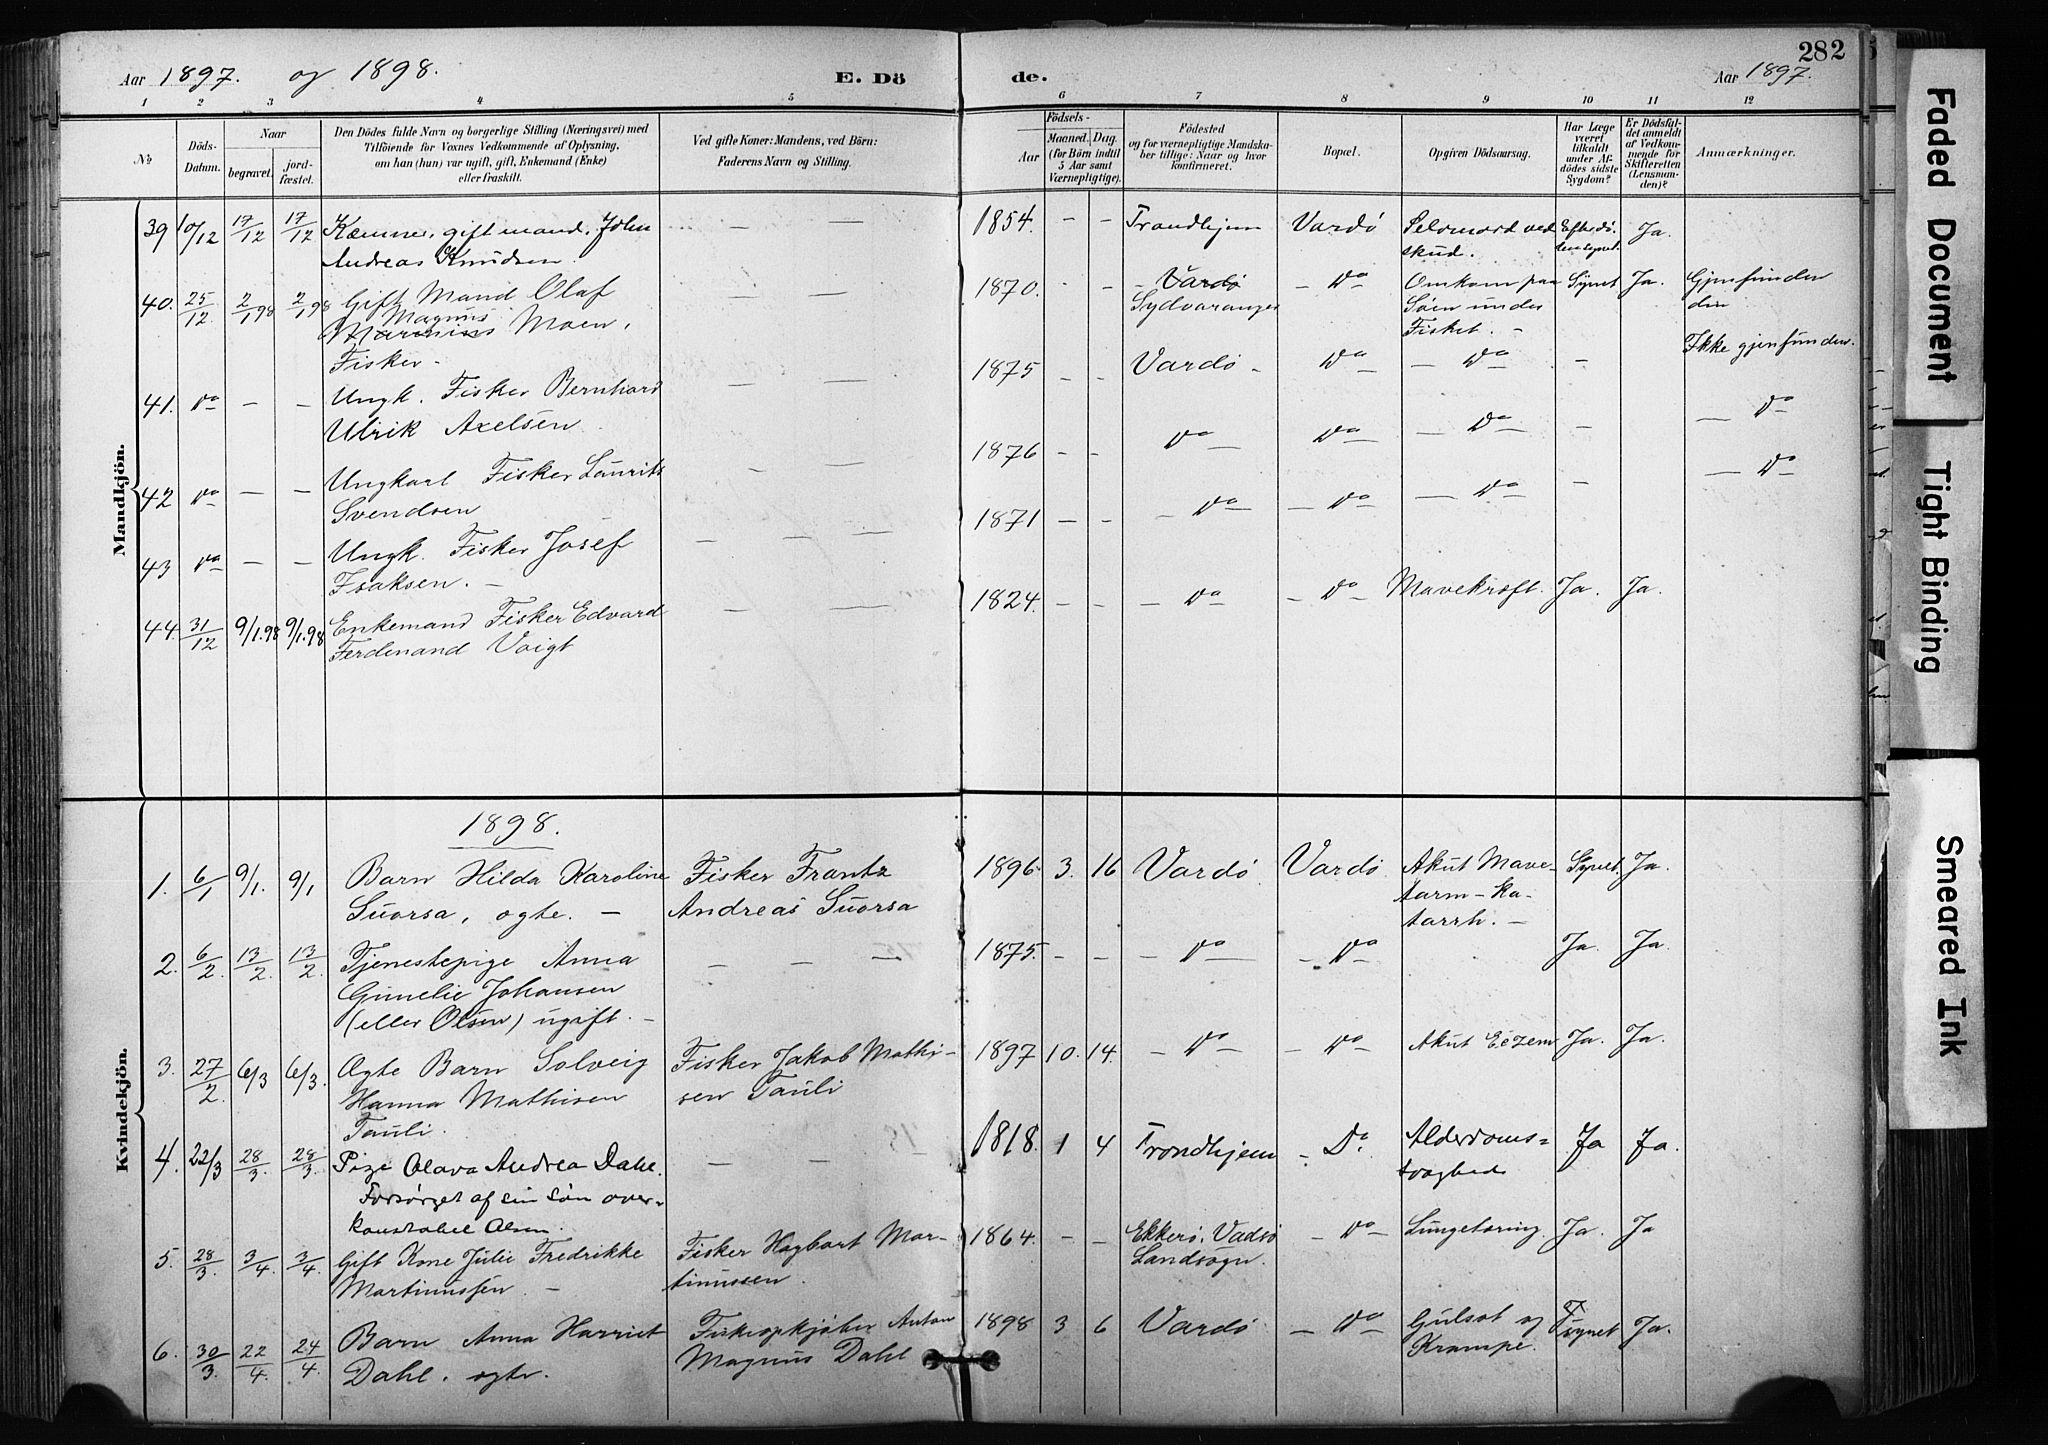 Aar 1897. og 1898. E. Dö
de. Aar 1897.
282
1 2 3 4 5
6 7 8 9 10 11 12
No
Döds-
Datum.
Naar
begravet.
jord-
fæstet.
Den Dödes fulde Navn og borgerlige Stilling (Næringsvei) med
Tilföiende for Voxnes Vedkommende af Oplysning,
om han (hun) var ugift, gift, Enkemand (Enke)
eller fraskilt.
Ved gifte Koner: Mandens, ved Börn:
Faderens Navn og Stilling.
Födsels-
Aar
Maaned. Dag.
(for Börn indtil
5 Aar samt
Værnepligtige).
Födested
og for værnepligtige Mandska-
ber tillige: Naar og hvor
konfirmeret.
Bopæl.
Opgiven Dödsaarsag.
Har Læge
været
tilkaldt
under Af-
dödes sidste
Sygdom?
Er Dödsfal-
det anmeldt
af Vedkom-
mende for
Skifteretten
(Lensman-
den)?
Anmærkninger.
Mandkjön.
39 10/12 17/12 17/12 Kæmner, gift mand, John
Andreas Knudsen.
1854. - - Trondhjem Vardö Selvmord ved
skud. Ja.
40. 25/12 2/1 98 2/1 98 Gift Mand Olaf
Magnus
Moen,
Fisker -
1870. - - Vardö
Sydvaranger - Do Omkom paa
Søen under
Fisket. - Synet Ja. Gjenfunden
41. Do - - Ungk. Fisker Bernhard
Ulrik Axelsen
1875 - - Vardö - Do - Do - - Ikke gjenfunden.
42 Do - - Ungkarl Fisker Laurits
Svendsen
1876 - - Do - Do - Do - - - Do
43 Do - - Ungk. Fisker Josef
Isaksen. -
1871 - - - Do - Do - Do - - - Do
44. 31/12 9/1.98 9/1.98 Enkemand Fisker Edvard
Ferdinand Voigt
1824. - - - Do - - Do Mavekræft. Ja. Ja.
Kvindekjön.
1898.
1. 6/1 9/1. 9/1 Barn Hilda Karoline
Suorsa, ægte. -
Fisker Frantz
Andreas Suorsa
1896 3. 16 Vardö. Vardö Akut Mave-
tarm-ka-
tarrh. - Synet Ja.
2. 6/2. 13/2 13/2. Tjenestepige Anna
Johansen
(eller Olsen) ugift. -
1875. - - - Do - - Do - Ja. Ja.
3. 27/2. 6/3 6/3. Ægte Barn Solveig
Hanna Mathisen
Tauli.
Fisker Jakob Mathi-
sen Tauli
1897 10. 14. - Do - - Do - Akut Eczem Ja. Ja.
4. 22/3 28/3. 28/3. Pige Olava Andrea Dahl.
Forsørget af sin søn over-
konstabel Olsen.
1818. 1 4 Trondhjem - Do. Alderdoms-
svaghed Ja Ja.
5. 28/3. 3/4. 3/4. Gift Kone Julie Fredrikke
Martinussen. -
Fisker Hagbart Mar-
tinussen.
1864. - - Ekkerö, Vadsö
Landsogn. - Do Lungetæring. Ja. Ja
6. 30/3. 22/4. 24/4 Barn Anna Harriet
Dahl. ægte.
Fiskeopkjøber Anton
Magnus Dahl
1898 3 6 Vardö - Do Gulsot og
Krampe. synet Ja.
Faded Document
Tight Binding
Smeared Ink